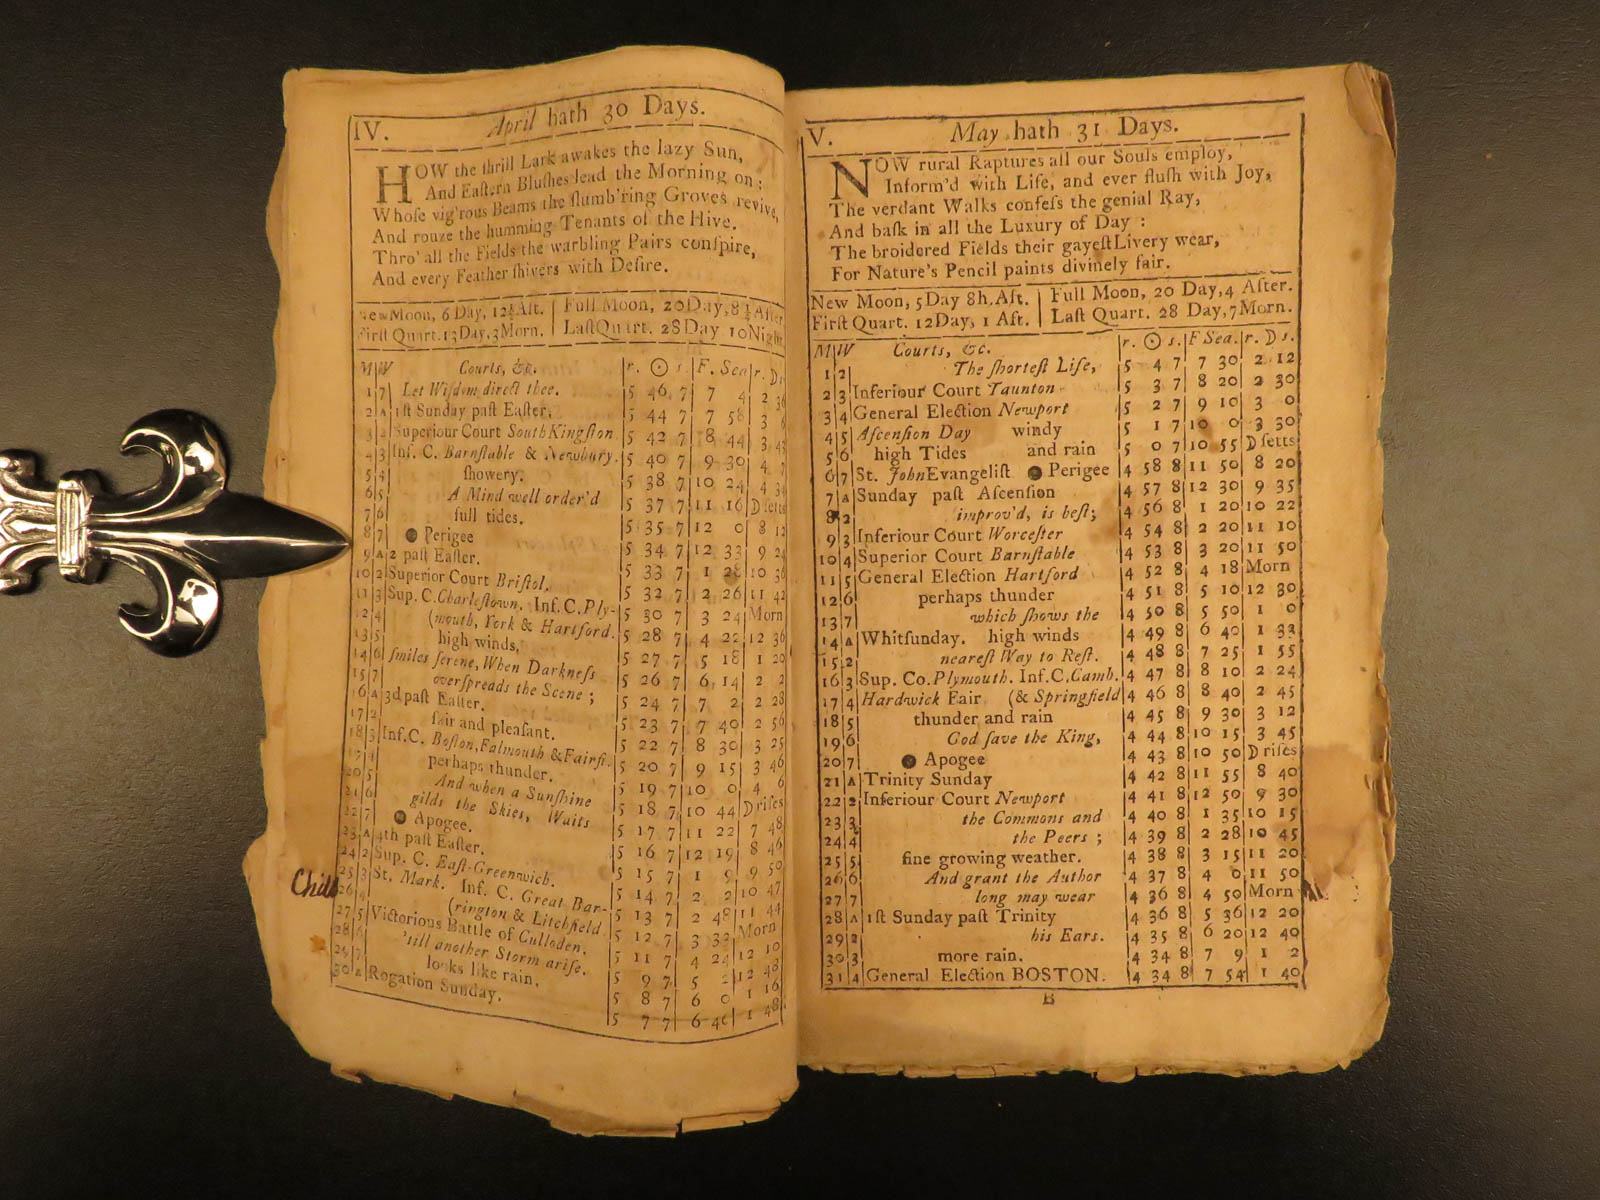 IV. April hath 30 Days.
HOW the thrill Lark awakes the lazy Sun,
And Eastern Blushes lead the Morning on;
Whose vig'rous Beams the slumb'ring Groves revive,
And rouze the humming Tenants of the Hive.
Thro' all the Fields the warbling Pairs conspire,
And every Feather shivers with Desire.
New Moon, 6 Day, 12½ Aft. | Full Moon, 20 Day, 8½ After
First Quart. 13 Day, 3 Morn. | Last Quart. 28 Day 10 Night
M W Courts, &c. r. ☉ s. F. Sea r. D s
1 7 Let Wisdom direct thee. 5 46 7 7 4 2 36
2 A 1st Sunday past Easter. 5 44 7 7 58 3 6
3 2 Superiour Court South Kingston 5 42 7 8 44 3 43
4 3 Inf. C. Barnstable & Newbury. 5 40 7 9 30 4 7
5 4 showery. 5 38 7 10 24 4 34
6 5 A Mind well order'd 5 37 7 11 16 D setts
7 6 full tides. 5 35 7 12 0 8 12
8 7 Perigee 5 34 7 12 33 9 24
9 A 2 past Easter. 5 33 7 1 28 10 36
10 2 Superior Court Bristol. 5 32 7 2 26 11 42
11 3 Sup. C. Charlestown. Inf. C. Ply- 5 30 7 3 24 Morn
12 4 (mouth, York & Hartford. 5 28 7 4 22 12 36
13 5 high winds, 5 27 7 5 18 1 20
14 6 smiles serene, When Darkness 5 26 7 6 14 2 2
15 7 overspreads the Scene; 5 24 7 7 2 2 28
16 A 3d past Easter. 5 23 7 7 40 2 56
17 2 fair and pleasant. 5 22 7 8 30 3 25
18 3 Inf. C. Boston, Falmouth & Fairfi. 5 20 7 9 15 3 46
19 4 perhaps thunder. 5 19 7 10 0 4 6
20 5 And when a Sunshine 5 18 7 10 44 D rises
21 6 gilds the Skies, Waits 5 17 7 11 22 7 48
22 7 Apogee. 5 16 7 12 19 8 46
23 A 4th past Easter. 5 15 7 1 9 9 50
24 2 Sup. C. East-Greenwich. 5 14 7 2 2 10 47
Child
25 3 St. Mark. Inf. C. Great Bar- 5 13 7 2 48 11 44
26 4 (rington & Litchfield 5 12 7 3 33 Morn
27 5 Victorious Battle of Culloden. 5 11 7 4 24 12 10
28 6 'till another Storm arise. 5 9 7 5 2 12 48
29 7 looks like rain. 5 8 7 6 0 1 16
30 A Rogation Sunday. 5 7 7 6 40 1 48
V. May hath 31 Days.
NOW rural Raptures all our Souls employ,
Inform'd with Life, and ever flush with Joy,
The verdant Walks confess the genial Ray,
And bask in all the Luxury of Day:
The broidered Fields their gayest Livery wear,
For Nature's Pencil paints divinely fair.
New Moon, 5 Day 8h. Aft. | Full Moon, 20 Day, 4 After.
First Quart. 12 Day, 1 Aft. | Last Quart. 28 Day, 7 Morn.
M W Courts, &c. r. ☉ s. F Sea. r. D s.
1 2 The shortest Life, 5 4 7 7 30 2 12
2 3 Inferiour Court Taunton 5 3 7 8 20 2 30
3 4 General Election Newport 5 2 7 9 10 3 0
4 5 Ascension Day windy 5 1 7 10 0 3 30
5 6 high Tides and rain 5 0 7 10 55 D setts
6 7 St. John Evangelist Perigee 4 58 8 11 50 8 20
7 A Sunday past Ascension 4 57 8 12 30 9 35
8 2 improv'd, is best; 4 56 8 1 20 10 22
9 3 Inferiour Court Worcester 4 54 8 2 20 11 10
10 4 Superior Court Barnstable 4 53 8 3 20 11 50
11 5 General Election Hartford 4 52 8 4 18 Morn
12 6 perhaps thunder 4 51 8 5 10 12 30
13 7 which shows the 4 50 8 5 50 1 0
14 A Whitsunday. high winds 4 49 8 6 40 1 33
15 2 nearest Way to Rest. 4 48 8 7 25 1 55
16 3 Sup. Co. Plymouth. Inf. C. Camb. 4 47 8 8 10 2 24
17 4 Hardwick Fair (& Springfield 4 46 8 8 40 2 45
18 5 thunder and rain 4 45 8 9 30 3 12
19 6 God save the King, 4 44 8 10 15 3 45
20 7 Apogee 4 43 8 10 50 D rises
21 A Trinity Sunday 4 42 8 11 55 8 40
22 2 Inferiour Court Newport 4 41 8 12 50 9 30
23 3 the Commons and 4 40 8 1 35 10 15
24 4 the Peers; 4 39 8 2 28 10 45
25 5 fine growing weather. 4 38 8 3 15 11 20
26 6 And grant the Author 4 37 8 4 0 11 50
27 7 long may wear 4 36 8 4 50 Morn
28 A 1st Sunday past Trinity 4 36 8 5 36 12 20
29 2 his Ears. 4 35 8 6 20 12 40
30 3 more rain. 4 34 8 7 9 1 2
31 4 General Election BOSTON. 4 34 8 7 54 1 40
B